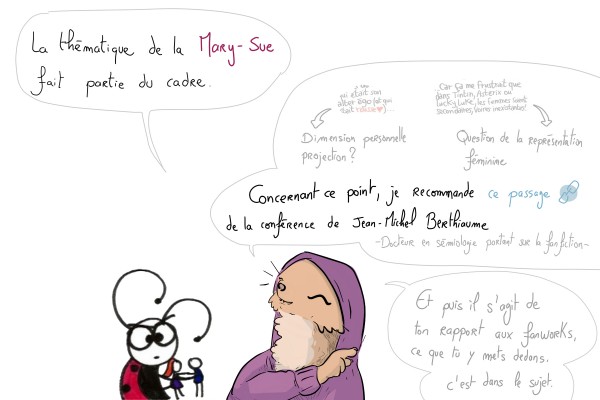 La thématique de la Mary-Sue
fait partie du cadre.
qui était son
alter ego (et qui
Dimension personnelle
projection?
Car ça me frustrait que
dans Tintin, Astérix ou
Lucky Luke, les femmes soient
secondaires, voire inexistantes!
Question de la représentation
féminine
Concernant ce point, je recommande ce passage
de la conférence de Jean-Michel Berthiaume
-Docteur en sémiologie portant sur la fanfiction-
Et puis il s'agit de
ton rapport aux fanworks,
ce que tu y mets dedans.
c'est dans le sujet.